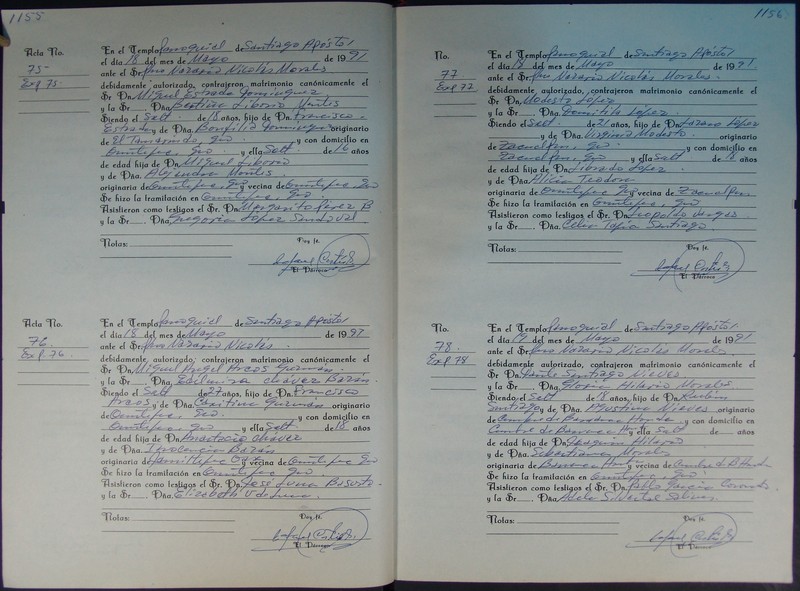 1155
Acta No.
75-
Exp 75-
En el Templo Parroquial de Santiago Apóstol
el día 18 del mes de Mayo de 1991
ante el Sr. Pbro Nazario Nicolás Morales
debidamente autorizado, contrajeron matrimonio canónicamente el
Sr. Dn. Miguel Estrada Domínguez
y la Sr. Dña.
Siendo el Solt. de 18 años, hijo de Francisco
Estrada y de Dña. Bonfilia Domínguez originario
de El Tamarindo, Gro y con domicilio en
Ometepec, Gro y ella Solt. de 16 años
de edad hija de Dn. Miguel Liborio
y de Dña. Alejandra
originaria de Ometepec, Gro y vecina de Ometepec, Gro
Se hizo la tramitación en Ometepec, Gro
Asistieron como testigos el Sr. Dn. Margarito Pérez B
y la Sr. Dña. Gregoria López Sandoval
Notas:
Doy fe.
El Párroco
Acta No.
76-
Exp 76-
En el Templo Parroquial de Santiago Apóstol
el día 18 del mes de Mayo de 1991
ante el Sr. Pbro Nazario Nicolás
debidamente autorizado, contrajeron matrimonio canónicamente el
Sr. Dn. Miguel Angel Arcos Guzmán
y la Sr. Dña. Edelmira Chávez Bazán
Siendo el Solt de 27 años, hijo de Francisco
Arcos y de Dña. Cristina Guzmán originario
de Ometepec, Gro. y con domicilio en
Ometepec, Gro y ella Solt. de 18 años
de edad hija de Dn. Anastacio Chávez
y de Dña. Inocencia Bazán
originaria de Ometepec Gro vecina de Ometepec Gro
Se hizo la tramitación en Ometepec, Gro
Asistieron como testigos el Sr. Dn. José Luna
y la Sr. Dña. Elizabeth V de Luna
Notas:
Doy fe.
El Párroco
1156
No.
77-
Exp 77
En el Templo Parroquial de Santiago Apóstol
el día 18 del mes de Mayo de 1991
ante el Sr. Pbro Nazario Nicolás Morales
debidamente autorizado, contrajeron matrimonio canónicamente el
Sr. Dn. Modesto López
y la Sr. Dña. Domitila López
Siendo el Solt. de 21 años, hijo de Lázaro López
y de Dña. Virginia Modesto originario
de Zacualpan, Gro. y con domicilio en
Zacualpan, Gro y ella Solt de 18 años
de edad hija de Dn. Librado López
y de Dña. Alicia Teodora
originaria de Ometepec Gro y vecina de Zacualpan
Se hizo la tramitación en Ometepec, Gro
Asistieron como testigos el Sr. Dn. Leopoldo Vargas
y la Sr. Dña. Celia Tapia Santiago
Notas:
Doy fe.
El Párroco
No.
78-
Exp 78
En el Templo Parroquial de Santiago Apóstol
el día 19 del mes de Mayo de 1991
ante el Sr. Pbro Nazario Nicolás Morales
debidamente autorizado, contrajeron matrimonio canónicamente el
Sr. Dn. Santiago Nieves
y la Sr. Dña. Gloria Hilario Morales
Siendo el Solt de 18 años, hijo de Rubén
Santiago y de Dña. Agustina Nieves originario
de Cumbre de Barranca Honda y con domicilio en
Cumbre de Barranca H y ella Solt de años
de edad hija de Dn. Joaquín Hilario
y de Dña. Sebastiana Morales
originaria de Barranca Honda y vecina de Cumbre de B Honda
Se hizo la tramitación en Ometepec, Gro
Asistieron como testigos el Sr. Dn. Pablo García Coronado
y la Sr. Dña. Adela Silvestre
Notas:
Doy fe.
El Párroco